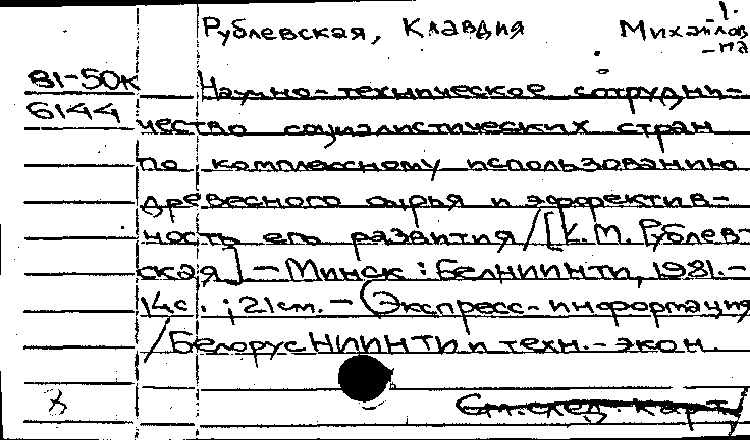 1.
Рублевская, Клавдия Михайлов-
на
81-50к Научно-техническое сотрудни-
6144 чество социалистических стран
по комплексному использованию
древесного сырья и эффектив-
ность его развития / [К. М. Рублев-
ская] - Минск : БелНИИНТИ, 1981. -
14с. ; 21 см. - (Экспресс-информация
/ Белорус НИИНТИ и техн.-экон.
х См. след. карт.